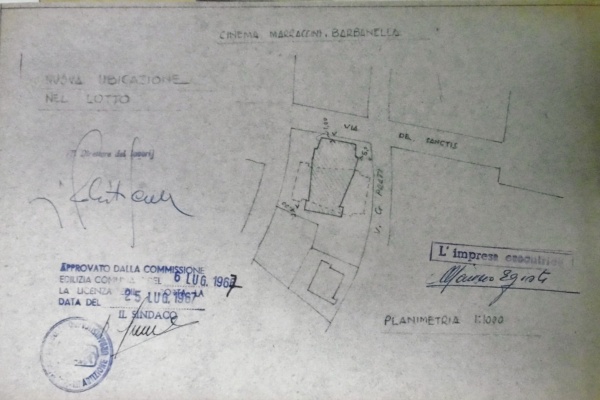 CINEMA MARRACCINI. BARBANELLA
NUOVA UBICAZIONE
NEL LOTTO
VIA DE SANCTIS
Il Direttore dei Lavori
V. G.
L'impresa esecutrice
APPROVATO DALLA COMMISSIONE
EDILIZIA DEL 6 LUG. 1967
LA LICENZA LA
DATA DEL 25 LUG. 1967
IL SINDACO
PLANIMETRIA 1:1000